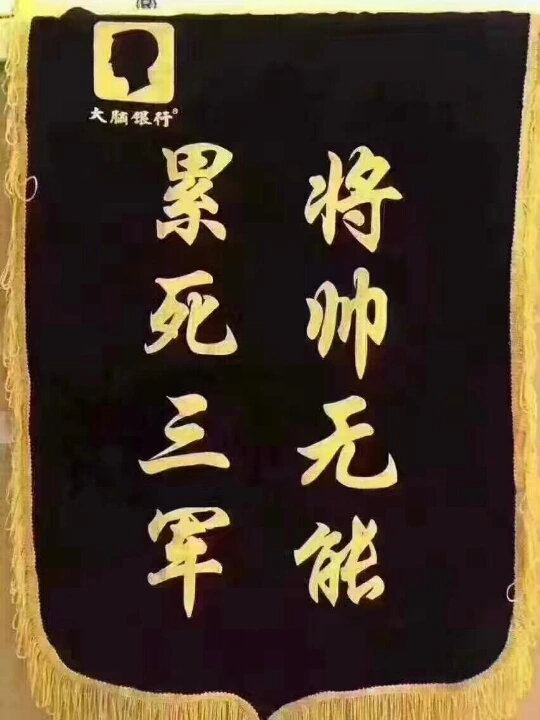 大脑银行®
将帅无能
累死三军